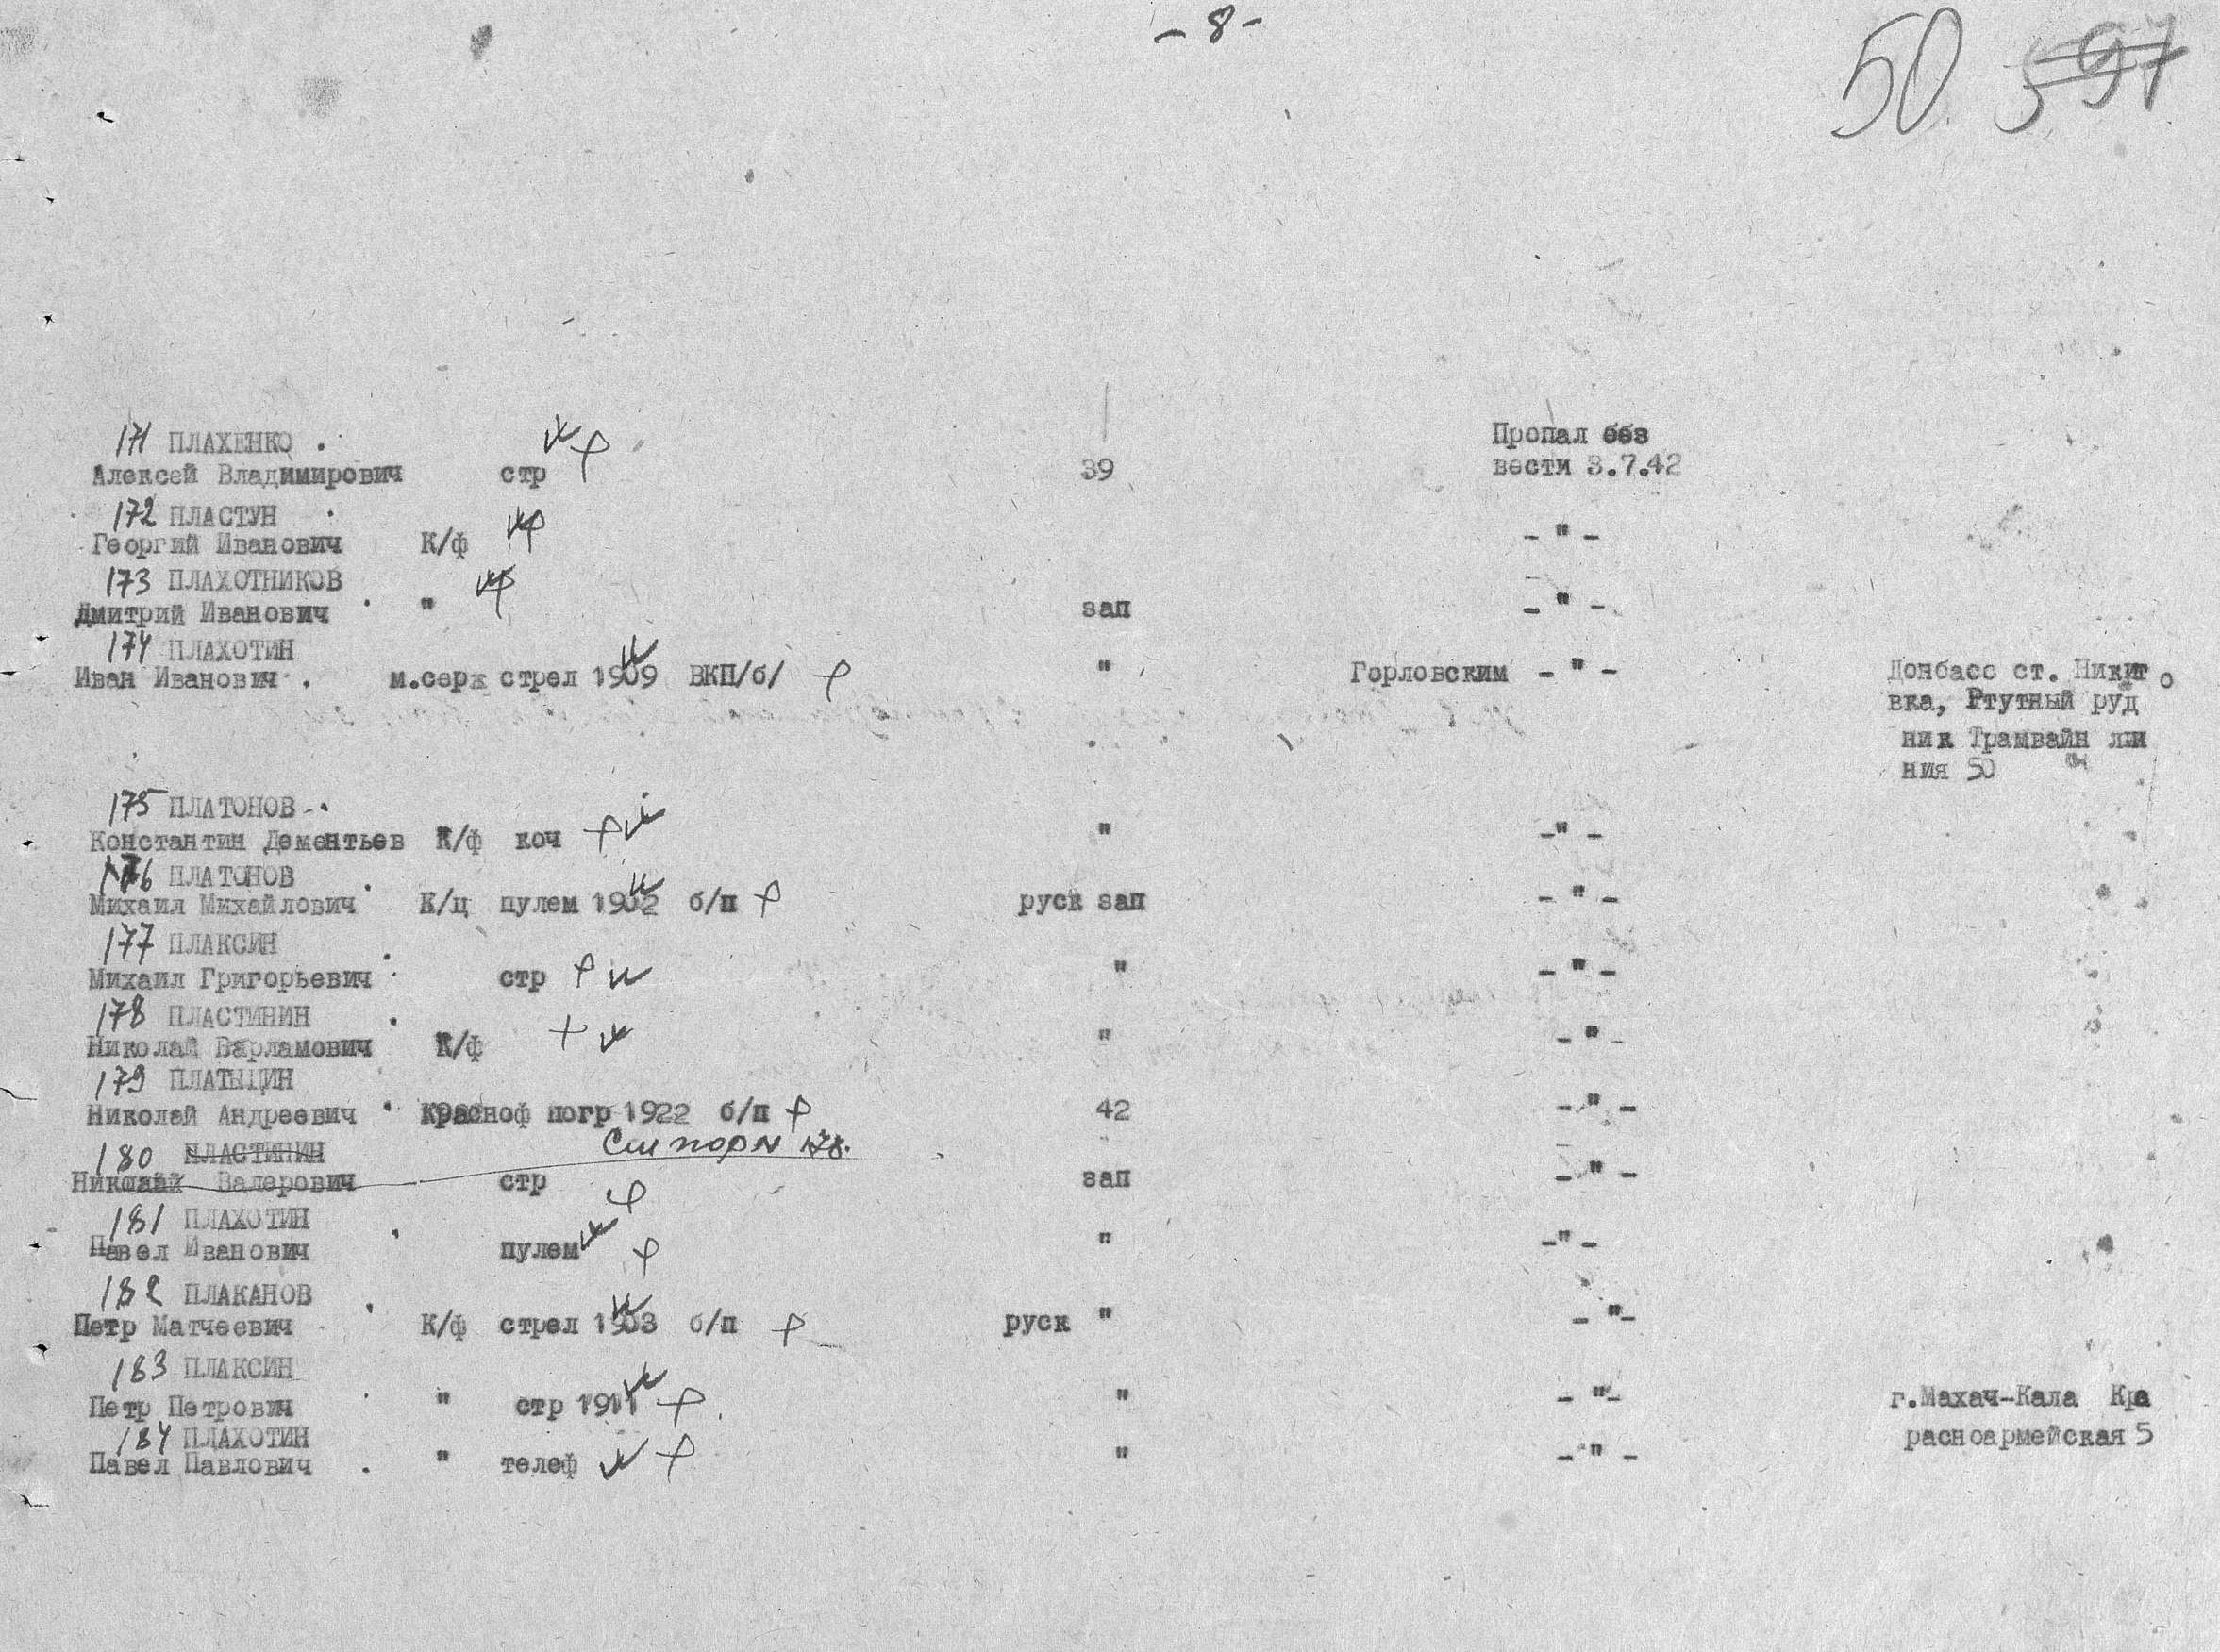 - 8 -
50 597
171 ПЛАХЕНКО . Пропал без
Алексей Владимирович стр 39 вести 3.7.42
172 ПЛАСТУН
Георгий Иванович К/ф - " -
173 ПЛАХОТНИКОВ
Дмитрий Иванович " зап - " -
174 ПЛАХОТИН
Иван Иванович . м.серж стрел 1909 ВКП/б/ " Горловским - " - Донбасс ст. Никито
вка, Ртутный руд
ник Трамвайн ли
ния 50
175 ПЛАТОНОВ - .
Константин Дементьев К/ф коч " -" -
176 ПЛАТОНОВ
Михаил Михайлович К/ц пулем 1902 б/п руск зап - " -
177 ПЛАКСИН
Михаил Григорьевич стр " - " -
178 ПЛАСТИНИН
Николай Варламович К/ф " - " -
179 ПЛАТЫЦИН
Николай Андреевич красноф погр 1922 б/п 42 - " -
180 ПЛАСТИНИН См пор N 178.
Николай Валерович стр зап - " -
181 ПЛАХОТИН
Павел Иванович пулем " -" -
182 ПЛАКАНОВ
Петр Матчеевич К/ф стрел 1903 б/п руск " - "-
183 ПЛАКСИН
Петр Петрович " стр 1911 " - "- г.Махач-Кала Кра
184 ПЛАХОТИН расноармейская 5
Павел Павлович . " телеф " - " -